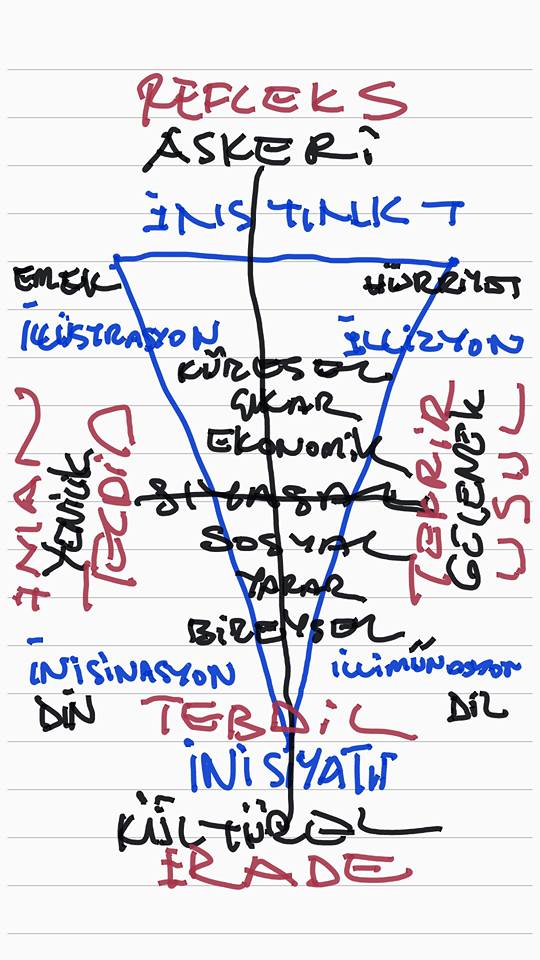 REFLEKS
ASKERİ
İNSTINKT
EMEK
HÜRRİYET
İLLÜSTRASYON
İLLİZYON
KÜRESEL
ÇIKAR
EKONOMİK
SİYASAL
SOSYAL
YARAR
BİREYSEL
YENİLİK
TECDİD
TEKRİR
GELENEK
USUL
İNİSİNASYON
İLLİMÜNASYON
DİN
TEBDİL
DİL
İNİSİYATİF
KÜLTÜREL
İRADE